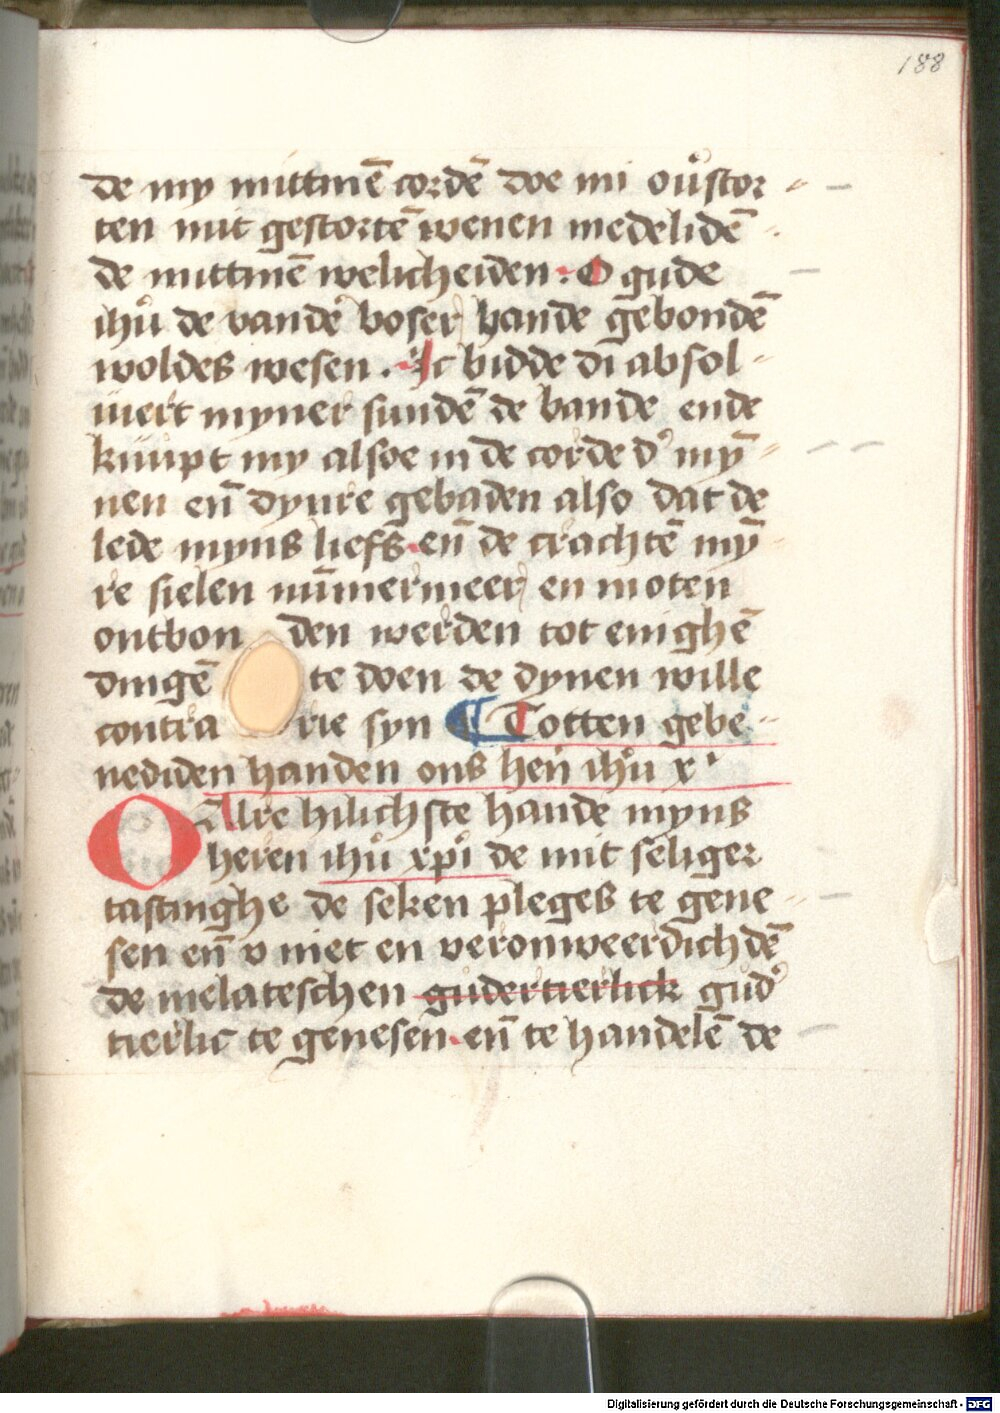 188
de my mittinē cordē doe mi oůstor-
ten mit gestortē wenen medelidē
de mittinē welicheiden. O gude
ihů de vandē boser hande gebondē
woldes wesen. Ic bidde di absol-
uiert myner sundē de bande ende
knüpt my alsoe in de corde d' mȳ-
nen eñ dynre gebaden also dat de
lede myns liefs eñ de crachtē mȳ-
re sielen nūmermeer en moten
ontbonden werden tot enighē
dingē te doen de dynen wille
contrarie syn ¶ Totten gebe-
nediden handen ons heñ ihů x'
O Alre hilichste hande myns
heren ihů xpī de mit seliger
tastinghe de seken pleges te gene-
sen eñ v niet en veronweerdichdē
de melateschen gudertierlick gud'
tierlic te genesen eñ te handelē de
Digitalisierung gefördert durch die Deutsche Forschungsgemeinschaft - DFG